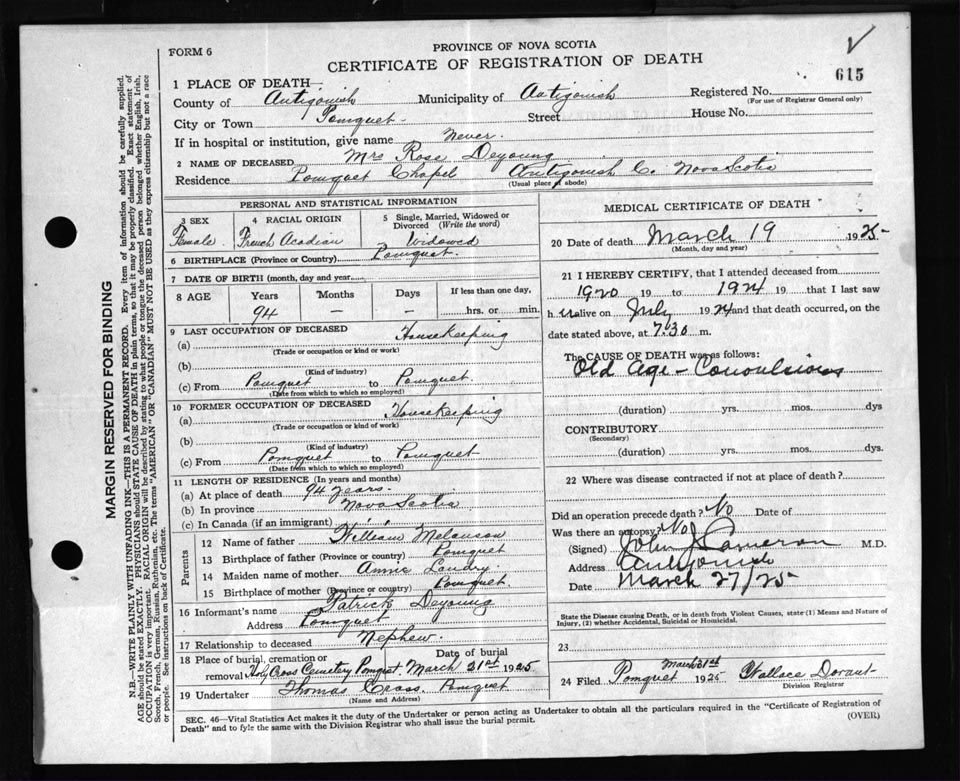 FORM 6
PROVINCE OF NOVA SCOTIA
CERTIFICATE OF REGISTRATION OF DEATH
615
1 PLACE OF DEATH—
County of Antigonish Municipality of Antigonish Registered No.
(For use of Registrar General only)
City or Town Pomquet Street House No.
If in hospital or institution, give name Never.
2 NAME OF DECEASED Mrs Rose Deyoung
Residence Pomquet Chapel Antigonish Co. Nova Scotia
(Usual place of abode)
PERSONAL AND STATISTICAL INFORMATION
3 SEX
Female
4 RACIAL ORIGIN
French Acadian
5 Single, Married, Widowed or Divorced (Write the word)
Widowed
6 BIRTHPLACE (Province or Country) Pomquet.
7 DATE OF BIRTH (month, day and year
8 AGE Years Months Days If less than one day,
94 — — hrs. or min.
9 LAST OCCUPATION OF DECEASED
(a) Housekeeping
(Trade or occupation or kind or work)
(b)
(Kind of industry)
(c) From Pomquet to Pomquet.
(Date from which to which so employed)
10 FORMER OCCUPATION OF DECEASED
(a) Housekeeping
(Trade or occupation or kind of work)
(b)
(Kind of industry)
(c) From Pomquet to Pomquet
(Date from which to which so employed)
11 LENGTH OF RESIDENCE (In years and months)
(a) At place of death 94 years.
(b) In province Nova Scotia
(c) In Canada (if an immigrant)
Parents
12 Name of father William Melanson
13 Birthplace of father (Province or country) Pomquet
14 Maiden name of mother Annie Landry
15 Birthplace of mother (Province or country) Pomquet.
16 Informant's name Patrick Deyoung
Address Pomquet
17 Relationship to deceased Nephew.
18 Place of burial, cremation or removal Holy Cross Cemetery Pomquet. Date of burial March 21st 1925
19 Undertaker Thomas Cross. Pomquet
(Name and Address)
MEDICAL CERTIFICATE OF DEATH
20 Date of death March 19 1925
(Month, day and year)
21 I HEREBY CERTIFY, that I attended deceased from
1920 19 to 1924 19 that I last saw
h er alive on July 1924 and that death occurred, on the
date stated above, at 7.30 m.
The CAUSE OF DEATH was as follows:
Old Age - Convulsions
(duration) yrs. mos. dys
CONTRIBUTORY
(Secondary)
(duration) yrs. mos. dys.
22 Where was disease contracted if not at place of death?
Did an operation precede death? No Date of
Was there an autopsy? No
(Signed) John J Cameron M.D.
Address Antigonish
Date March 27/25
State the Disease causing Death, or in death from Violent Causes, state (1) Means and Nature of Injury, (2) whether Accidental, Suicidal or Homicidal.
23
24 Filed Pomquet March 31st 1925 Wallace Dorant
Division Registrar
SEC. 46—Vital Statistics Act makes it the duty of the Undertaker or person acting as Undertaker to obtain all the particulars required in the "Certificate of Registration of
Death" and to fyle the same with the Division Registrar who shall issue the burial permit.
(OVER)
MARGIN RESERVED FOR BINDING
N.B.—WRITE PLAINLY WITH UNFADING INK—THIS IS A PERMANENT RECORD. Every item of information should be carefully supplied.
AGE should be stated EXACTLY. PHYSICIANS should STATE CAUSE OF DEATH in plain terms, so that it may be properly classified. Exact statement of
OCCUPATION is very important. RACIAL ORIGIN will be described by stating to what people or tongue the deceased person belonged whether English, Irish,
Scotch, French, German, Russian, Ruthenian, etc. The terms "AMERICAN" or "CANADIAN" MUST NOT BE USED as they express citizenship but not a race
or people. See instructions on back of Certificate.